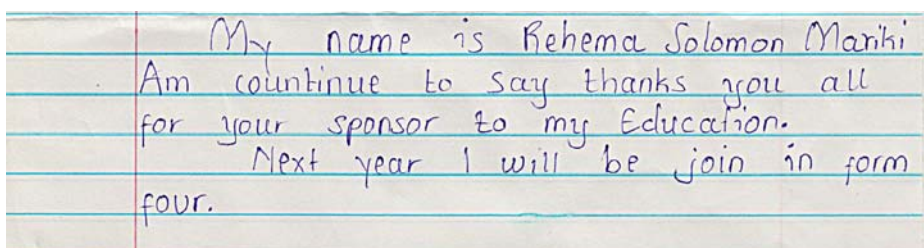 My name is Rehema Solomon Mariki
Am countinue to say thanks you all
for your sponsor to my Education.
Next year I will be join in form
four.